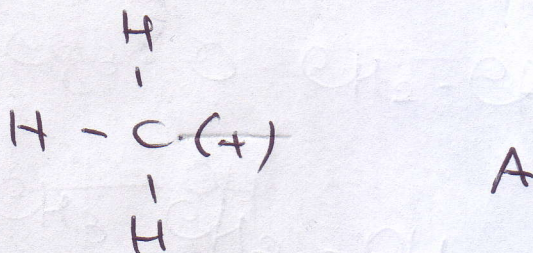 H
H - C (+)
H
A